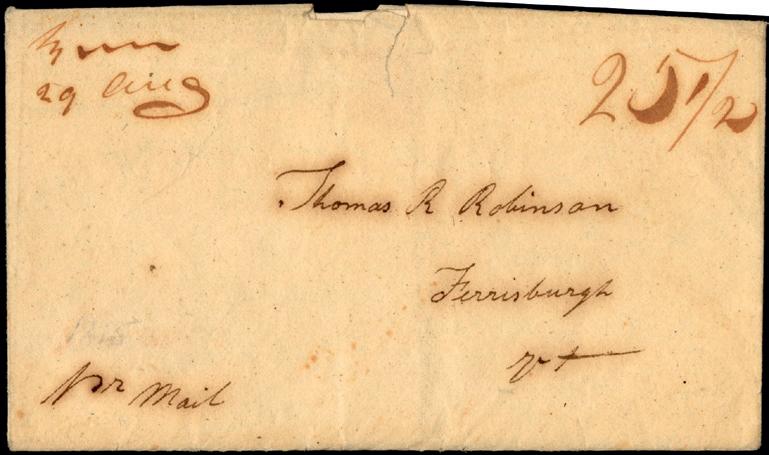 Lynn
29 Aug
25 1/2
Thomas R Robinson
Ferrisburgh
Vt
Per Mail